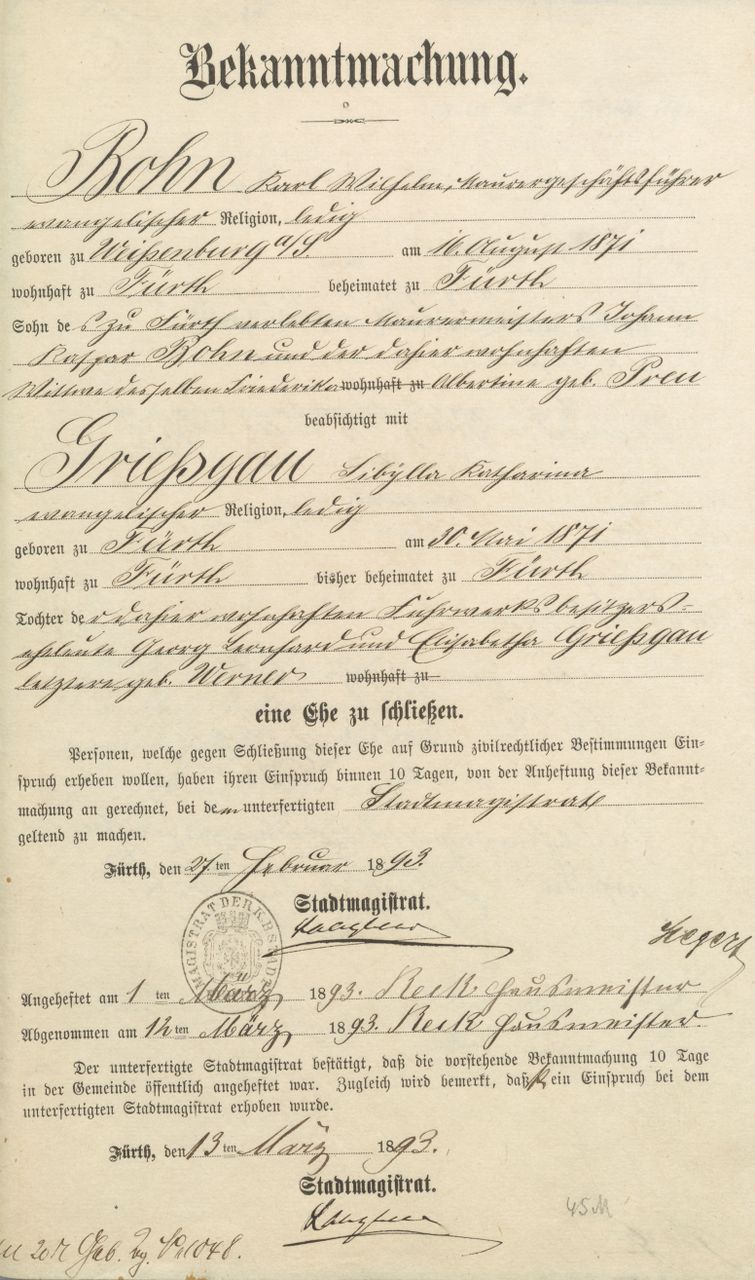 Bekanntmachung.
Bohn Karl Wilhelm, Maurergeschäftsführer
evangelischer Religion, ledig
geboren zu Weißenburg a/S. am 16. August 1871
wohnhaft zu Fürth beheimatet zu Fürth
Sohn des zu Fürth verlebten Maurermeisters Johann
Kaspar Bohn und der dahier wohnhaften
Wittwe desselben Friederika wohnhaft zu Albertine geb. Preu
beabsichtigt mit
Grießgau Sibylla Katharina
evangelischer Religion, ledig
geboren zu Fürth am 30. Mai 1871
wohnhaft zu Fürth bisher beheimatet zu Fürth
Tochter der dahier wohnhaften Fuhrwerksbesitzers-
eheleute Georg Leonhard und Elisabetha Grießgau
letztere geb. Werner wohnhaft zu
eine Ehe zu schließen.
Personen, welche gegen Schließung dieser Ehe auf Grund zivilrechtlicher Bestimmungen Ein-
spruch erheben wollen, haben ihren Einspruch binnen 10 Tagen, von der Anheftung dieser Bekannt-
machung an gerechnet, bei dem unterfertigten Stadtmagistrate
geltend zu machen.
Fürth, den 27ten Februar 1893.
Stadtmagistrat.
MAGISTRAT DER K.B. STADT
Hegert
Angeheftet am 1ten März 1893. Reck Hausmeister
Abgenommen am 12ten März 1893. Reck Hausmeister.
Der unterfertigte Stadtmagistrat bestätigt, daß die vorstehende Bekanntmachung 10 Tage
in der Gemeinde öffentlich angeheftet war. Zugleich wird bemerkt, daß kein Einspruch bei dem
unterfertigten Stadtmagistrat erhoben wurde.
Fürth, den 13ten März 1893.
Stadtmagistrat.
45 M